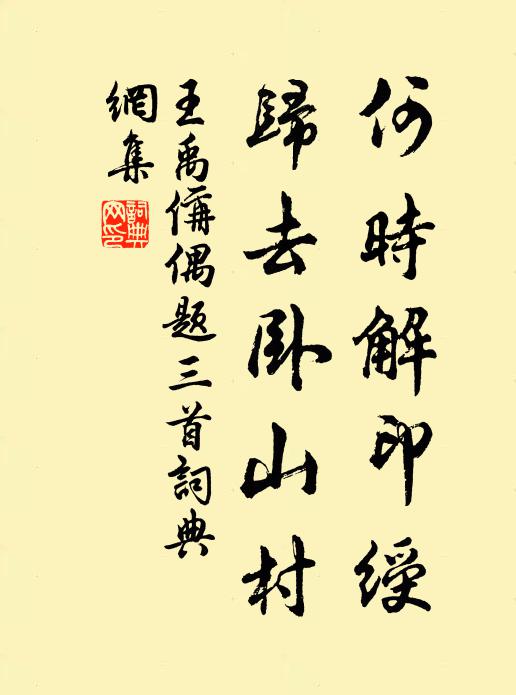 何時解印綬
歸去臥山村
王禹偁偶题三首詞典
網集
詞典
网印